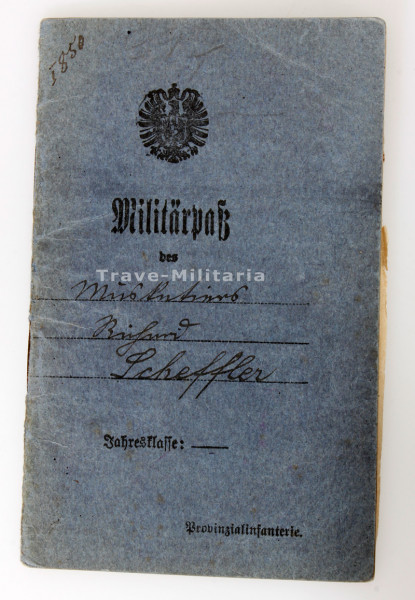 I 850
Militärpaß
des
Trave-Militaria
Musketiers
Richard
Scheffler
Jahresklasse: —
Provinzialinfanterie.